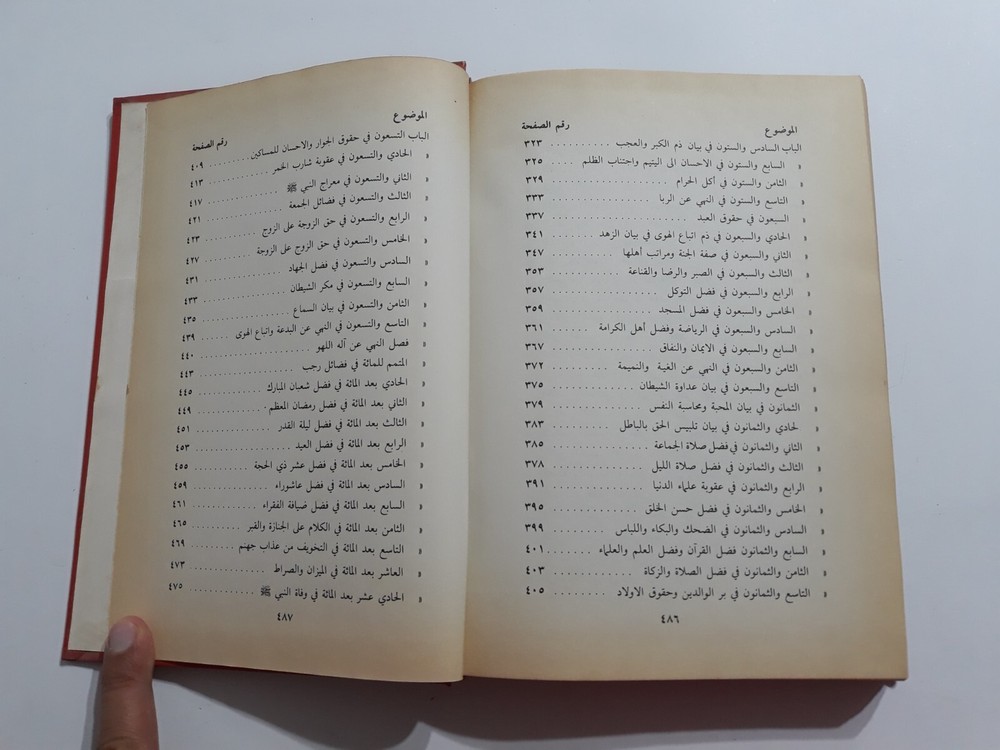 الموضوع رقم الصفحة
الباب السادس والستون في بيان ذم الكبر والعجب . . . . . . . . . . ٣٢٣
« السابع والستون في الاحسان الى اليتيم واجتناب الظلم . . . . . ٣٢٥
« الثامن والستون في أكل الحرام . . . . . . . . . . . . . . . . . . . ٣٢٩
« التاسع والستون في النهي عن الربا . . . . . . . . . . . . . . . . . ٣٣٣
« السبعون في حقوق العبد . . . . . . . . . . . . . . . . . . . . . . ٣٣٧
« الحادي والسبعون في ذم اتباع الهوى في بيان الزهد . . . . . . . . ٣٤١
« الثاني والسبعون في صفة الجنة ومراتب أهلها . . . . . . . . . . . ٣٤٧
« الثالث والسبعون في الصبر والرضا والقناعة . . . . . . . . . . . . ٣٥٣
« الرابع والسبعون في فضل التوكل . . . . . . . . . . . . . . . . . . ٣٥٧
« الخامس والسبعون في فضل المسجد . . . . . . . . . . . . . . . . ٣٥٩
« السادس والسبعون في الرياضة وفضل أهل الكرامة . . . . . . ٣٦١
« السابع والسبعون في الايمان والنفاق . . . . . . . . . . . . . . . . ٣٦٧
« الثامن والسبعون في النهي عن الغيبة والنميمة . . . . . . . . . . ٣٧٢
« التاسع والسبعون في بيان عداوة الشيطان . . . . . . . . . . . . . ٣٧٥
« الثمانون في بيان المحبة ومحاسبة النفس . . . . . . . . . . . . . . ٣٧٩
« لحادي والثمانون في بيان تلبيس الحق بالباطل . . . . . . . . . . . ٣٨٣
« الثاني والثمانون في فضل صلاة الجماعة . . . . . . . . . . . . . . ٣٨٥
« الثالث والثمانون في فضل صلاة الليل . . . . . . . . . . . . . . . ٣٧٨
« الرابع والثمانون في عقوبة علماء الدنيا . . . . . . . . . . . . . . . ٣٩١
« الخامس والثمانون في فضل حسن الخلق . . . . . . . . . . . . . . ٣٩٥
« السادس والثمانون في الضحك والبكاء واللباس . . . . . . . . . . ٣٩٩
« السابع والثمانون فضل القرآن وفضل العلم والعلماء . . . . . . . ٤٠١
« الثامن والثمانون في فضل الصلاة والزكاة . . . . . . . . . . . . . ٤٠٣
« التاسع والثمانون في بر الوالدين وحقوق الاولاد . . . . . . . . ٤٠٥
٤٨٦
الموضوع رقم الصفحة
الباب التسعون في حقوق الجوار والاحسان للمساكين . . . . . . . . . . ٤٠٩
« الحادي والتسعون في عقوبة شارب الخمر . . . . . . . . . . . . . . ٤١٣
« الثاني والتسعون في معراج النبي ﷺ . . . . . . . . . . . . . . . . ٤١٧
« الثالث والتسعون في فضائل الجمعة . . . . . . . . . . . . . . . . ٤٢١
« الرابع والتسعون في حق الزوجة على الزوج . . . . . . . . . . . . ٤٢٣
« الخامس والتسعون في حق الزوج على الزوجة . . . . . . . . . . . ٤٢٧
« السادس والتسعون في فضل الجهاد . . . . . . . . . . . . . . . . ٤٣١
« السابع والتسعون في مكر الشيطان . . . . . . . . . . . . . . . . ٤٣٣
« الثامن والتسعون في بيان السماع . . . . . . . . . . . . . . . . . ٤٣٥
« التاسع والتسعون في النهي عن البدعة واتباع الهوى . . . . . . ٤٣٩
« فصل النهي عن آله اللهو . . . . . . . . . . . . . . . . . . . . . ٤٤٠
« المتمم للمائة في فضائل رجب . . . . . . . . . . . . . . . . . . . ٤٤٣
« الحادي بعد المائة في فضل شعبان المبارك . . . . . . . . . . . . . ٤٤٥
« الثاني بعد المائة في فضل رمضان المعظم . . . . . . . . . . . . . . ٤٤٩
« الثالث بعد المائة في فضل ليلة القدر . . . . . . . . . . . . . . . ٤٥١
« الرابع بعد المائة في فضل العيد . . . . . . . . . . . . . . . . . . ٤٥٣
« الخامس بعد المائة في فضل عشر ذي الحجة . . . . . . . . . . . . ٤٥٥
« السادس بعد المائة في فضل عاشوراء . . . . . . . . . . . . . . . ٤٥٩
« السابع بعد المائة في فضل ضيافة الفقراء . . . . . . . . . . . . . ٤٦١
« الثامن بعد المائة في الكلام على الجنازة والقبر . . . . . . . . . . ٤٦٥
« التاسع بعد المائة في التخويف من عذاب جهنم . . . . . . . . . . ٤٦٩
« العاشر بعد المائة في الميزان والصراط . . . . . . . . . . . . . . . ٤٧٣
« الحادي عشر بعد المائة في وفاة النبي ﷺ . . . . . . . . . . . . . ٤٧٥
٤٨٧